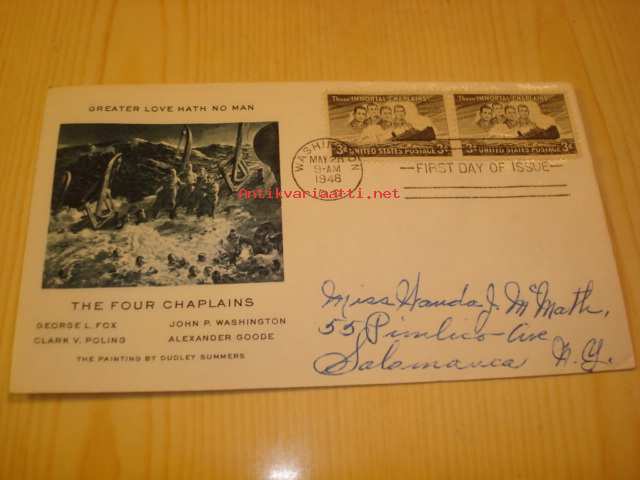 GREATER LOVE HATH NO MAN
THE FOUR CHAPLAINS
GEORGE L. FOX JOHN P. WASHINGTON
CLARK V. POLING ALEXANDER GOODE
THE PAINTING BY DUDLEY SUMMERS
These IMMORTAL CHAPLAINS
3¢ UNITED STATES POSTAGE 3¢
These IMMORTAL CHAPLAINS
3¢ UNITED STATES POSTAGE 3¢
WASHINGTON
MAY 28
9-AM
1948
FIRST DAY OF ISSUE
Antikvariaatti.net
Miss Wanda J. McMath,
55 Pimlico Ave
Salamanca N.Y.